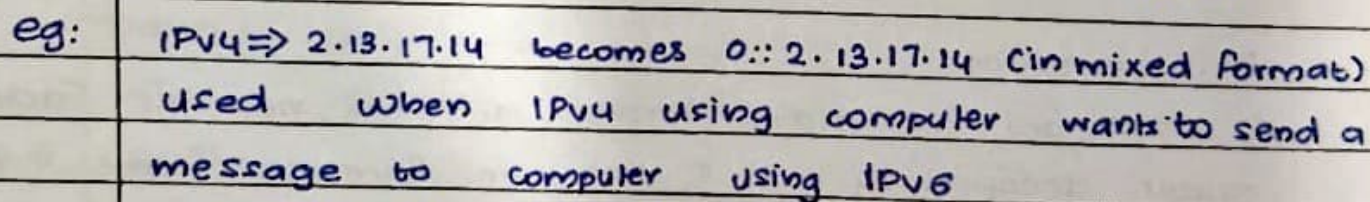 eg: IPv4=> 2.13.17.14 becomes 0::2.13.17.14 (in mixed format)
used when IPv4 using computer wants to send a
message to computer using IPv6